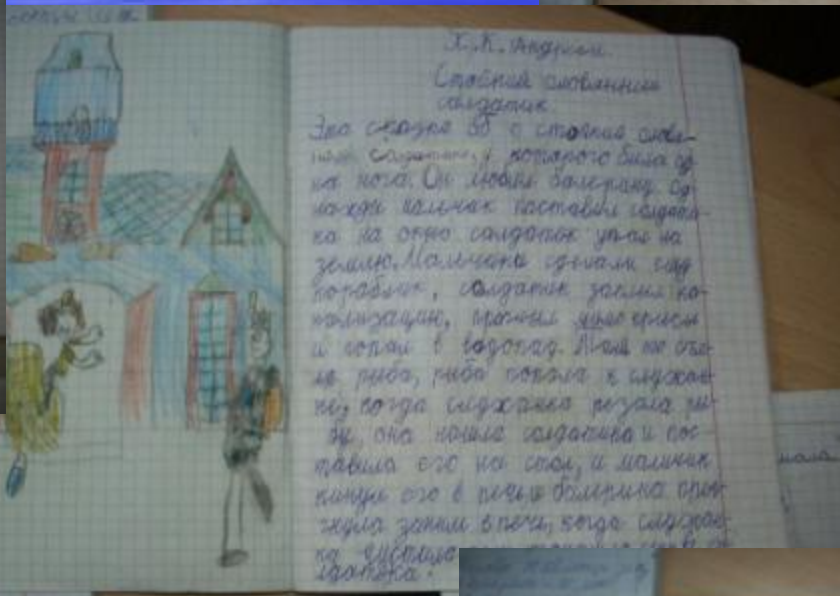 Х. К. Андрсен.
Стойкий оловянный
солдатик.
Эта сказка об о стойкие олове-
солдатике, у которого была од
на нога. Он любил балерину. Од-
нажды мальчик поставил солдати-
ка на окно солдатик упал на
землю. Мальчики сделали
кораблик, солдатик заплыл ка-
нализацию, проплыл мимо крысы
и попал в водопад. Там его съе-
ла рыба, рыба попала к служан-
ке, когда служанка резала ры-
бу, она нашла солдатика и пос-
тавила его на стол, и мальчик
кинул его в печь и балерина прыг-
гнула заним в печь, когда служан-
ка